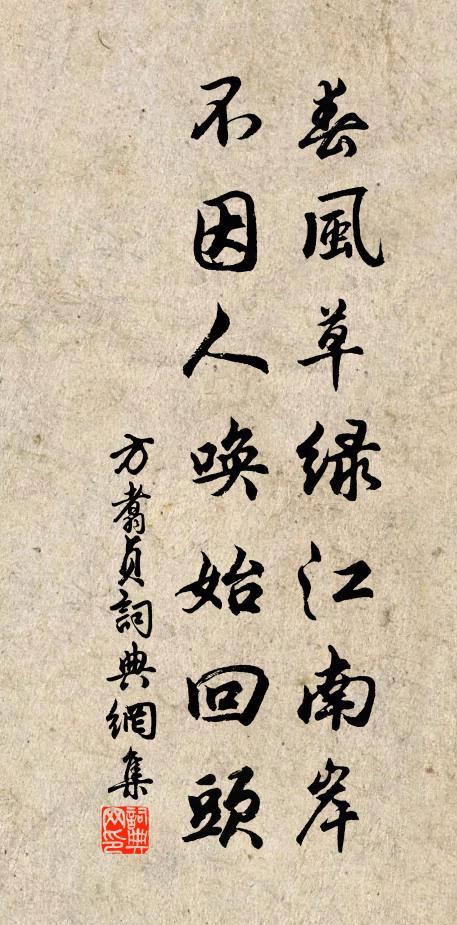 春風草緑江南岸
不因人喚始回頭
方翥貞詞典網集
詞典网印